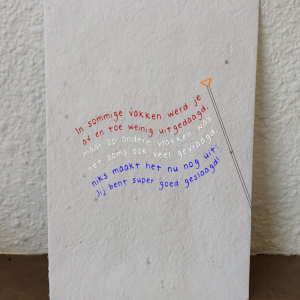 In sommige vakken werd je
af en toe weinig uitgedaagd,
maar op andere vlakken was
het soms ook veel gevraagd.
niks maakt het nu nog uit:
Jij bent super goed geslaagd!